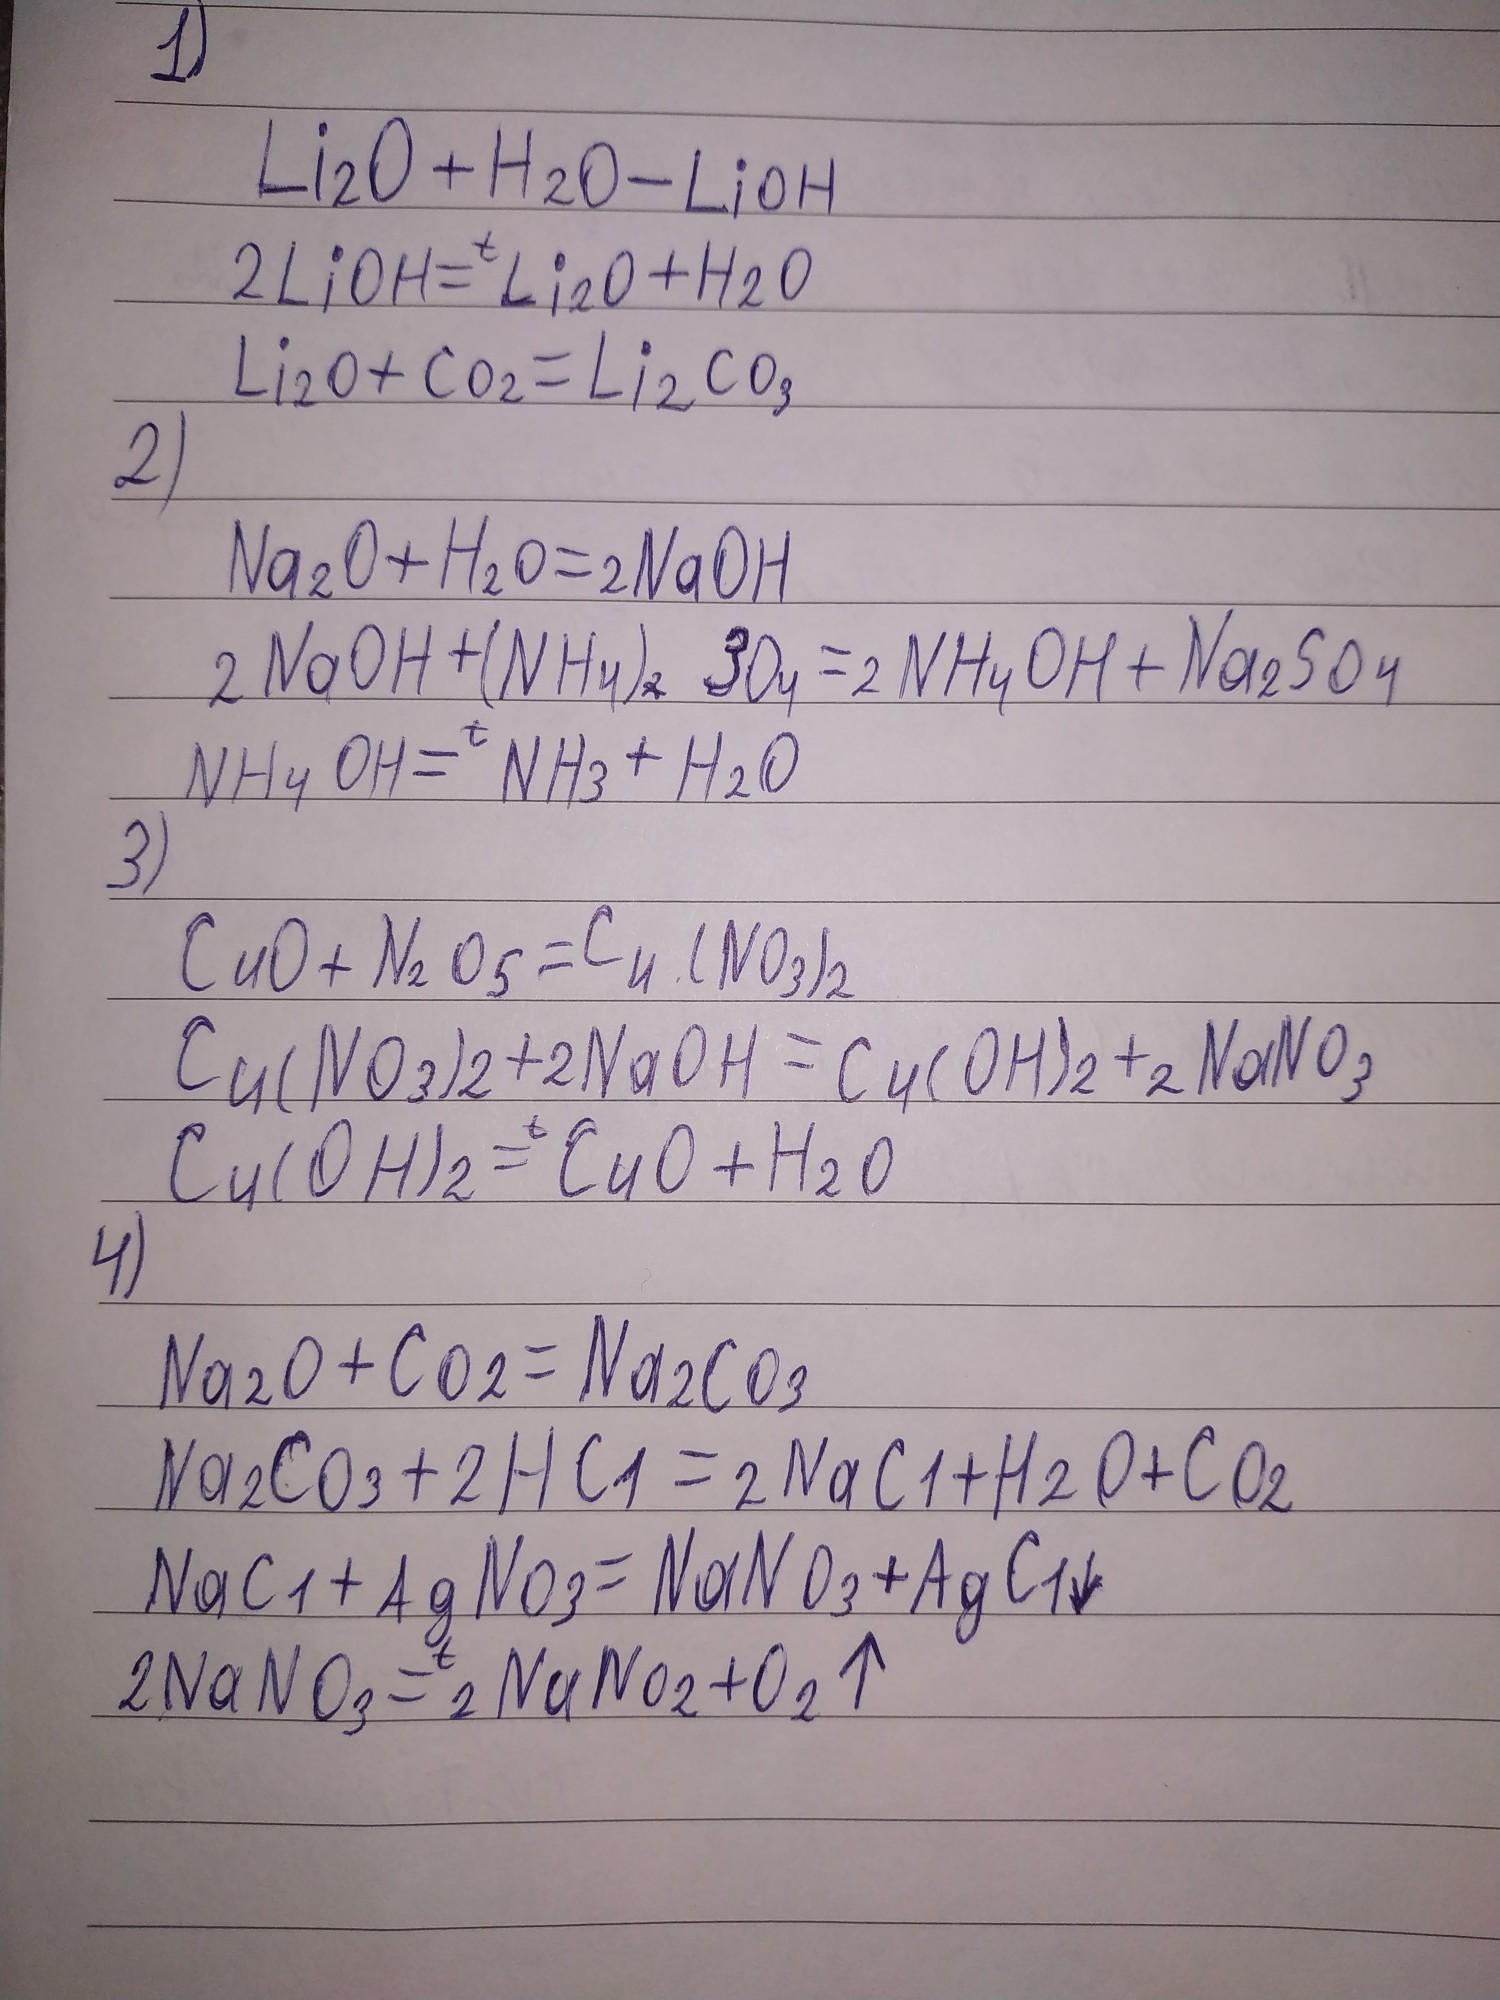 1)
Li2O + H2O - LiOH
2LiOH =t Li2O + H2O
Li2O + CO2 = Li2CO3
2)
Na2O + H2O = 2NaOH
2NaOH + (NH4)2 SO4 = 2NH4OH + Na2SO4
NH4OH =t NH3 + H2O
3)
CuO + N2O5 = Cu(NO3)2
Cu(NO3)2 + 2NaOH = Cu(OH)2 + 2NaNO3
Cu(OH)2 =t CuO + H2O
4)
Na2O + CO2 = Na2CO3
Na2CO3 + 2HCl = 2NaCl + H2O + CO2
NaCl + AgNO3 = NaNO3 + AgCl↓
2NaNO3 =t 2NaNO2 + O2↑